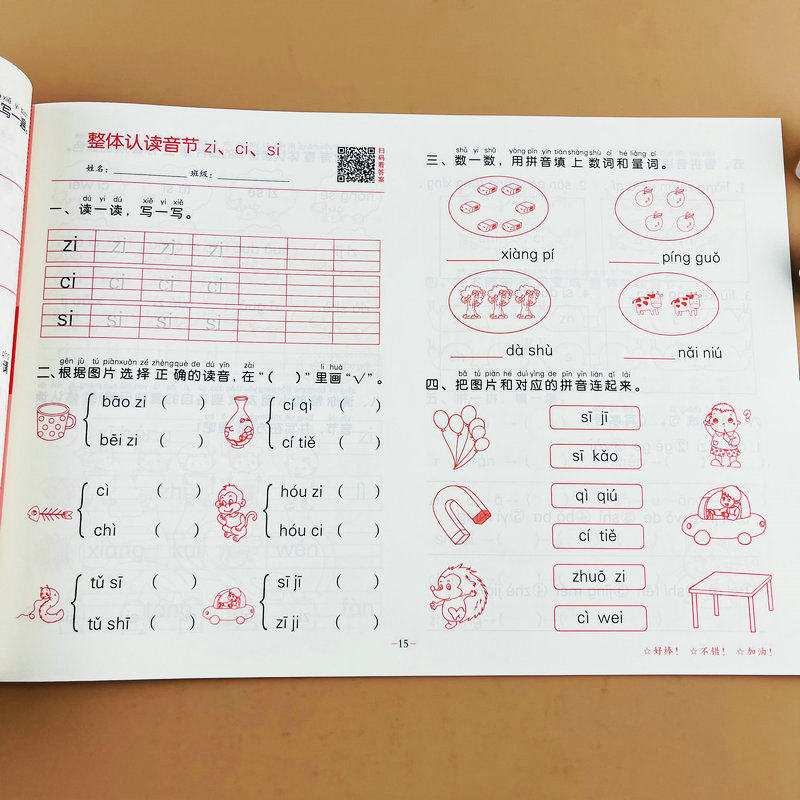 整体认读音节 zi、ci、si
扫码看答案
姓名： 班级：
dú yi dú xiě yi xiě
一、读一读，写一写。
zi zi zi zi
ci ci ci ci
si si si si
gēn jù tú piàn xuǎn zé zhèng què de dú yīn zài lǐ huà
二、根据图片选择正确的读音，在“（ ）”里画“√”。
bāo zi （ ） cí qì （ ）
bēi zi （ ） cí tiě （ ）
cì （ ） hóu zi （ ）
chì （ ） hóu ci （ ）
tǔ sī （ ） sī jī （ ）
tǔ shī （ ） zī ji （ ）
shǔ yi shǔ yòng pīn yīn tián shàng shù cí hé liàng cí
三、数一数，用拼音填上数词和量词。
xiàng pí píng guǒ
dà shù nǎi niú
bǎ tú piàn hé duì yìng de pīn yīn lián qǐ lái
四、把图片和对应的拼音连起来。
?
sī jī
sī kǎo
qì qiú
cí tiě
zhuō zi
cì wei
-15-
☆好棒！ ☆不错！ ☆加油！